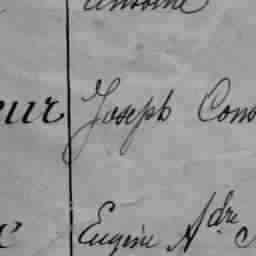 Antoine
eur Joseph Cons
Eugène Adre